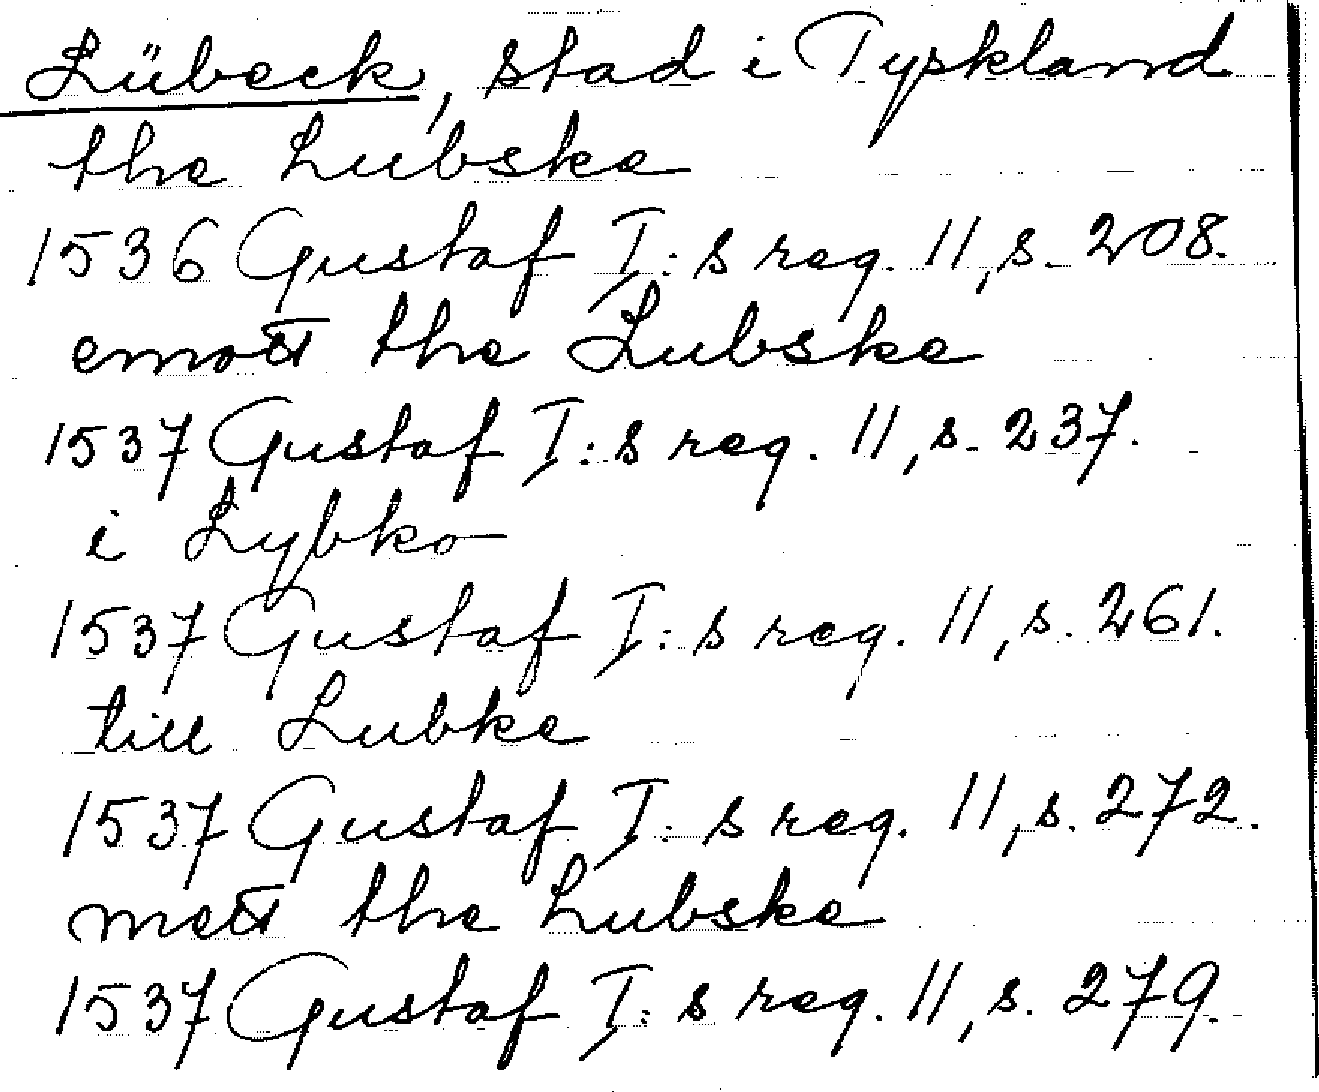 Lübeck, stad i Tyskland
the Lubske
1536 Gustaf I:s reg. 11, s. 208.
emott the Lubske
1537 Gustaf I:s reg. 11, s. 237.
i Lybko
1537 Gustaf I:s reg. 11, s. 261.
till Lubke
1537 Gustaf I:s reg. 11, s. 272.
mett the Lubske
1537 Gustaf I:s reg. 11, s. 279.